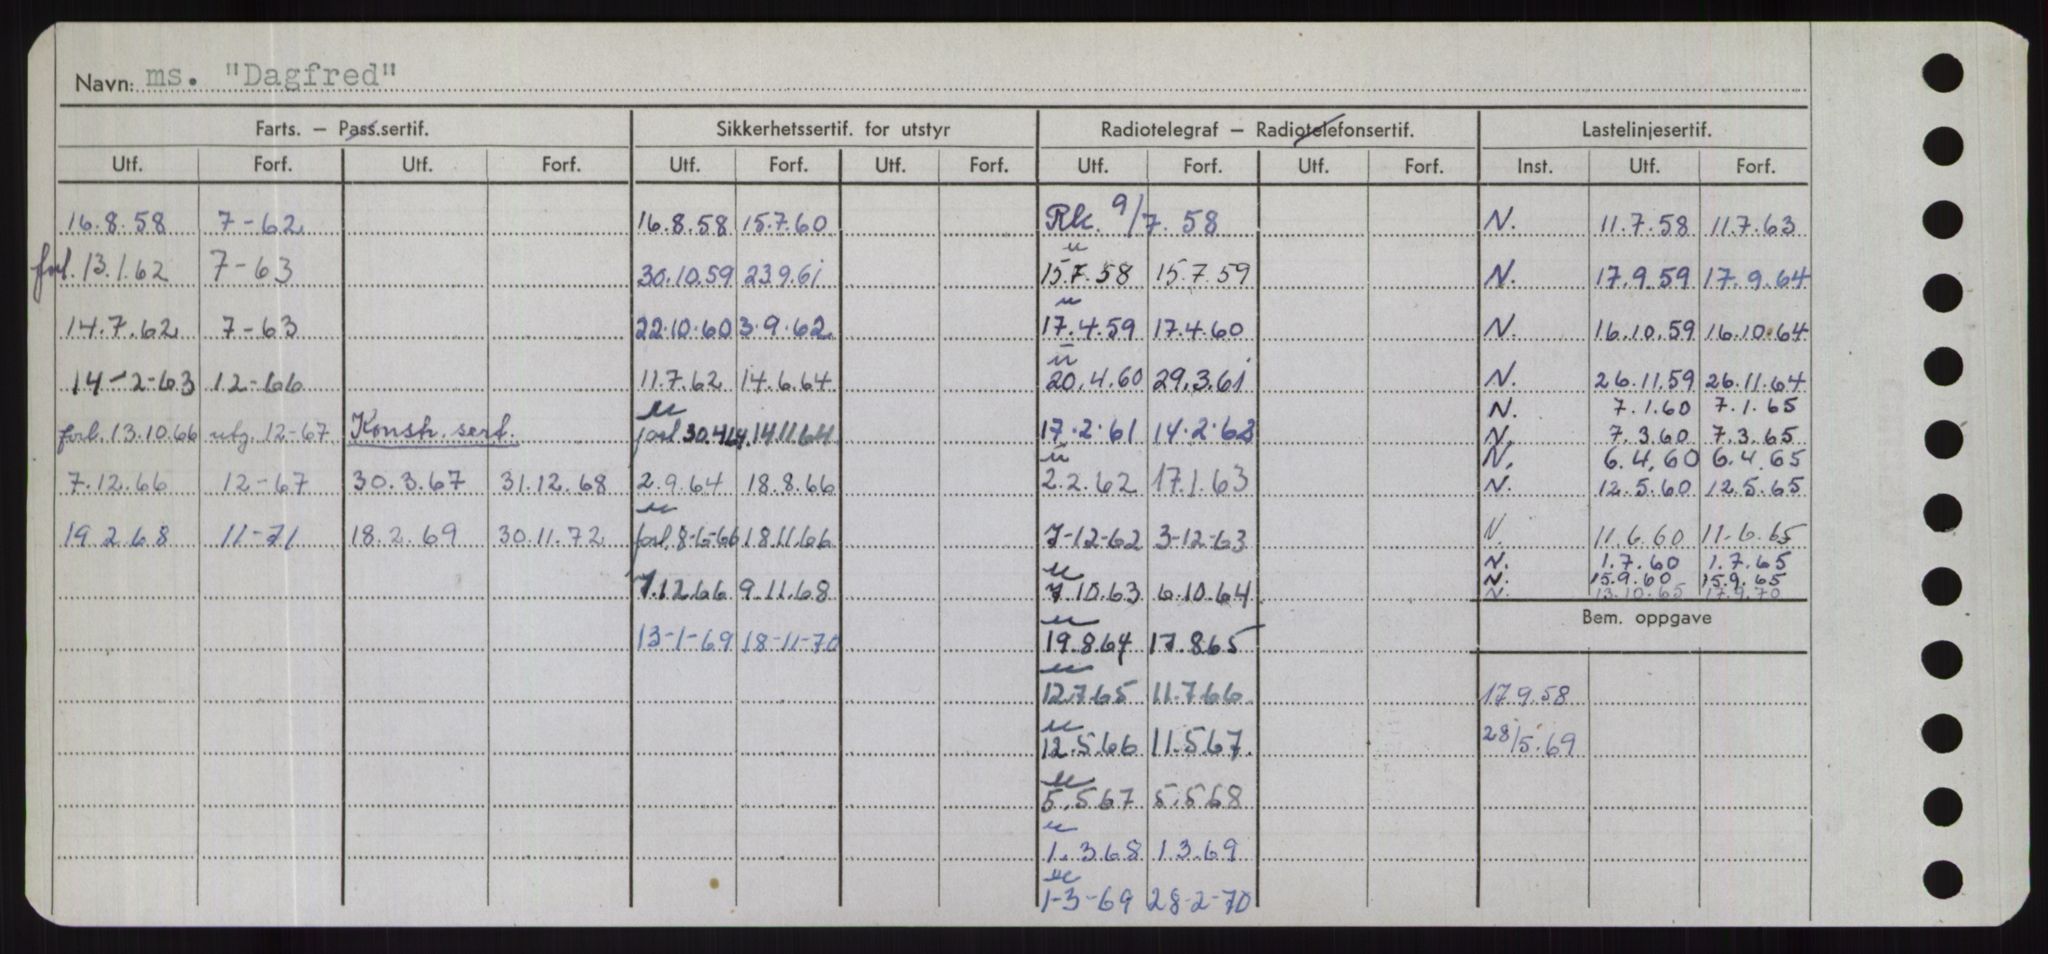 Navn: ms. "Dagfred"
Farts. – Pass.sertif. Sikkerhetssertif. for utstyr Radiotelegraf – Radiotelefonsertif. Lastelinjesertif.
Utf. Forf. Utf. Forf. Utf. Forf. Utf. Forf. Utf. Forf. Utf. Forf. Inst. Utf. Forf.
16.8.58 7-62 16.8.58 15.7.60 Rk. 9/7.58 N. 11.7.58 11.7.63
forl. 13.1.62 7-63 30.10.59 23.9.61 15.7.58 15.7.59 N. 17.9.59 17.9.64
14.7.62 7-63 22.10.60 3.9.62 17.4.59 17.4.60 N. 16.10.59 16.10.64
14-2-63 12-66 11.7.62 14.6.64 20.4.60 29.3.61 N. 26.11.59 26.11.64
N. 7.1.60 7.1.65
forl. 13.10.66 utg. 12-67 Konstr. sert. forl. 30.4.64. 14.11.64 17.2.61 14.2.62 N. 7.3.60 7.3.65
N. 6.4.60 6.4.65
7.12.66 12-67 30.3.67 31.12.68 2.9.64 18.8.66 2.2.62 17.1.63 N. 12.5.60 12.5.65
19.2.68 11-71 18.2.69 30.11.72 forl. 8-6-66 18.11.66 7-12-62 3-12-63 N. 11.6.60 11-6.65
N. 1.7.60 1.7.65
N. 15.9.60 15.9.65
7.12.66 9.11.68 7.10.63 6.10.64 N. 13.10.65 17.9.70
Bem. oppgave
13-1-69 18-11-70 19.8.64 17.8.65
12.7.65 11.7.66 17.9.58
12.5.66 11.5.67 28/5.69
5.5.67 5.5.68
1.3.68 1.3.69
1-3-69 28-2-70